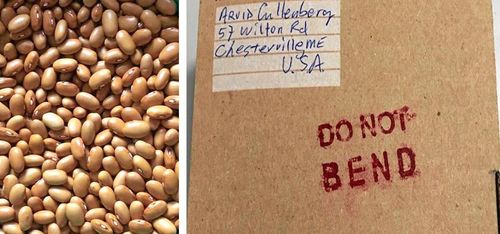 ARVID Cullenberg
57 Wilton Rd
Chesterville ME
U.S.A
DO NOT
BEND